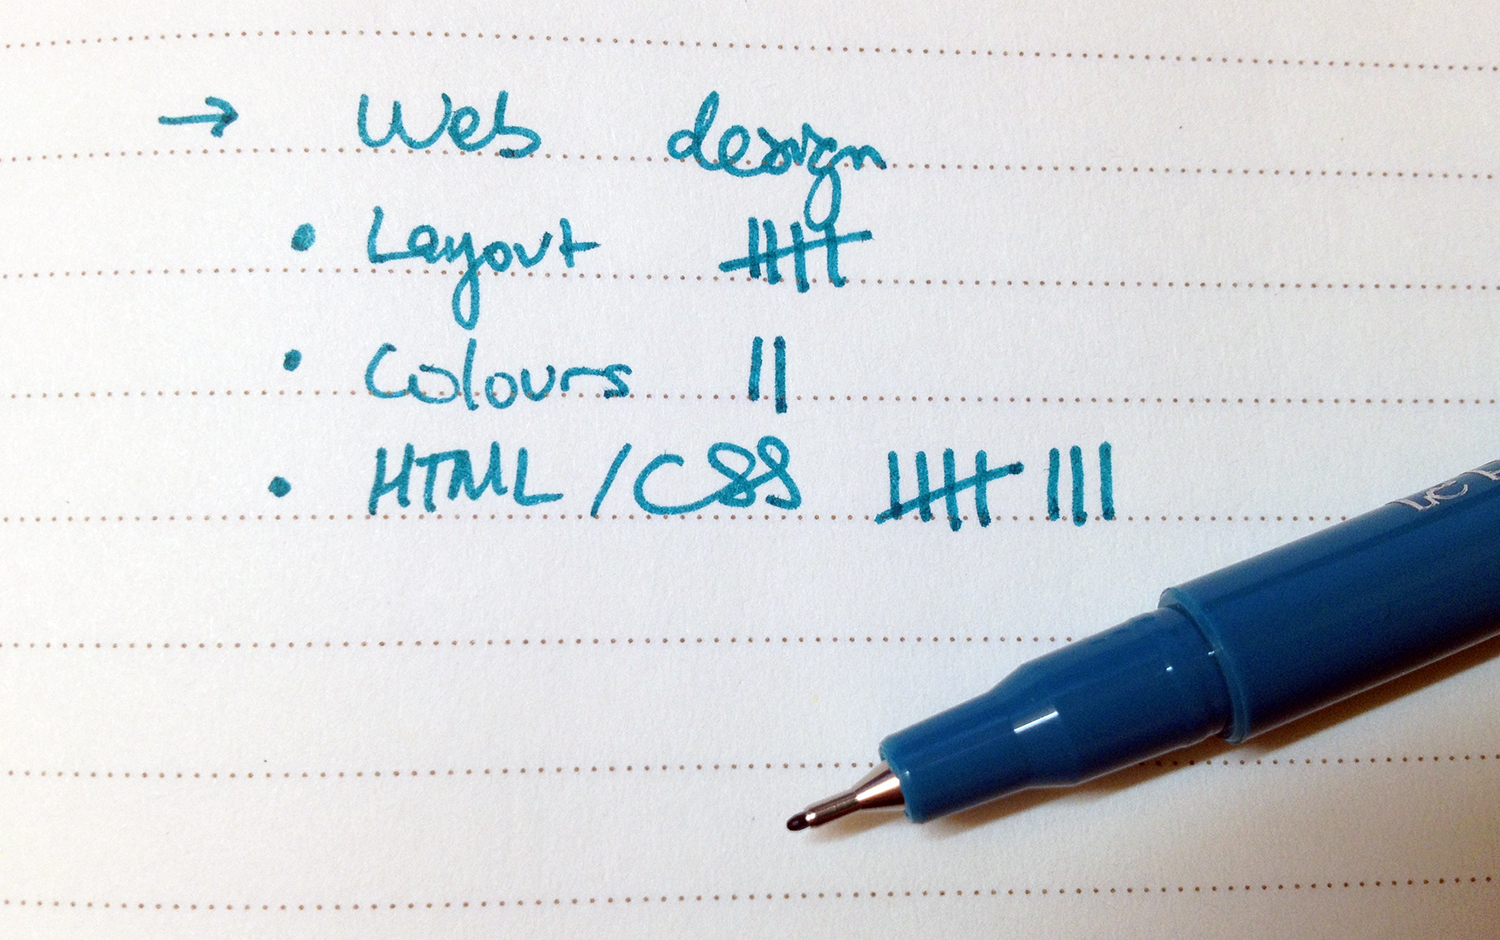 → Web design
• Layout 卌
• Colours ||
• HTML/CSS 卌 |||
Le